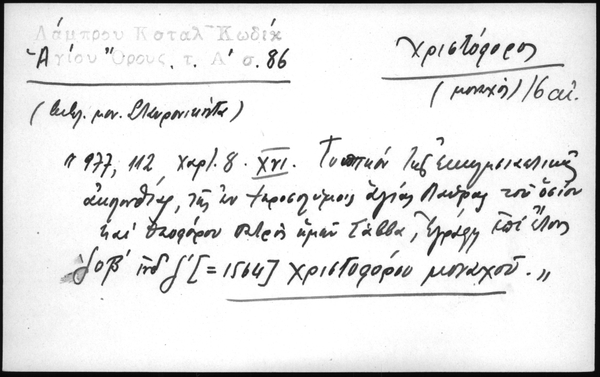 Λάμπρου Καταλ Κωδίκ
Ἁγίου Ὄρους. τ. Α' σ. 86
Χριστόφορος
(μοναχός) 16 αἰ.
(βιβλ. μον. Σταυρονικήτα)
" 977, 112, χαρτ. 8. XVI. Τυπικόν τῆς ἐκκλησιαστικῆς
ἀκολουθίας, τῆς ἐν Ἱεροσολύμοις ἁγίας Λαύρας τοῦ ὁσίου
καὶ θεοφόρου πατρὸς ἡμῶν Σάββα, Ἐγράφη ἐπὶ ἔτους
ζοβ' ἰνδ ζ' [=1564] Χριστοφόρου μοναχοῦ. "